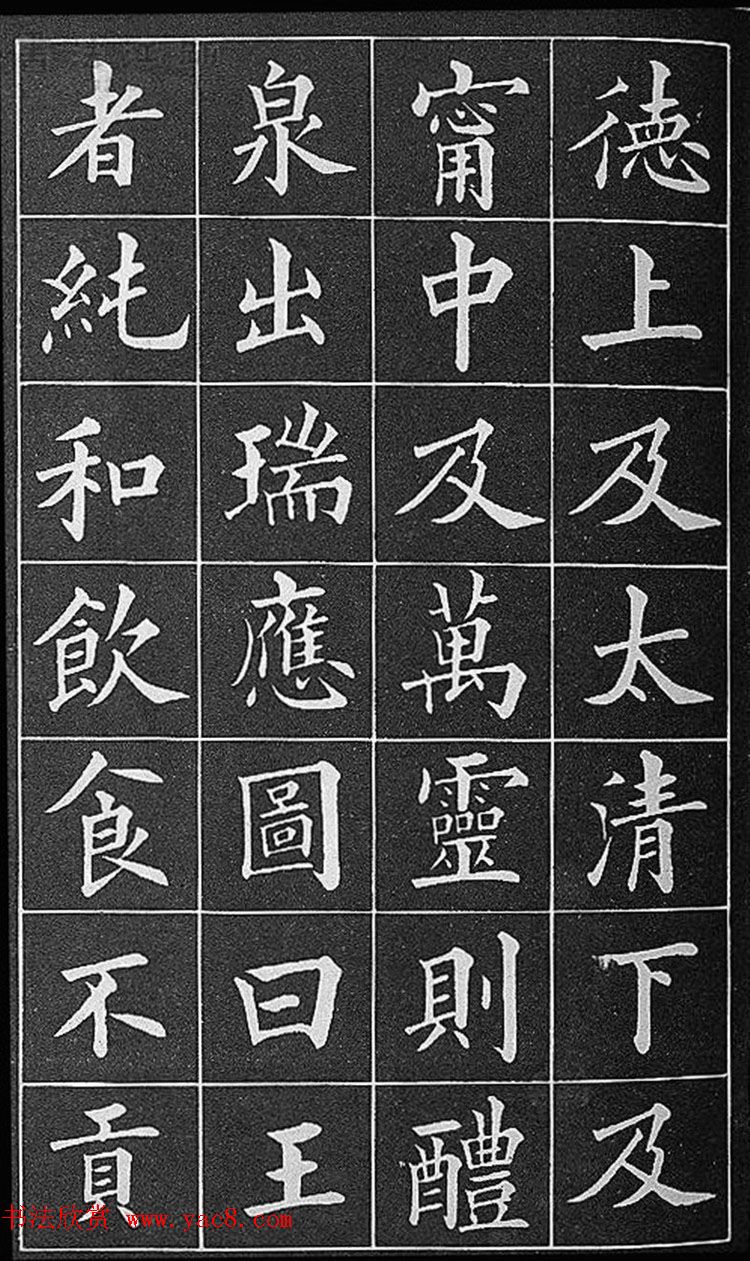 徳上及太清下及
甯中及萬靈則醴
泉出瑞應圖曰王
者純和飲食不貢
书法欣赏 www.yac8.com